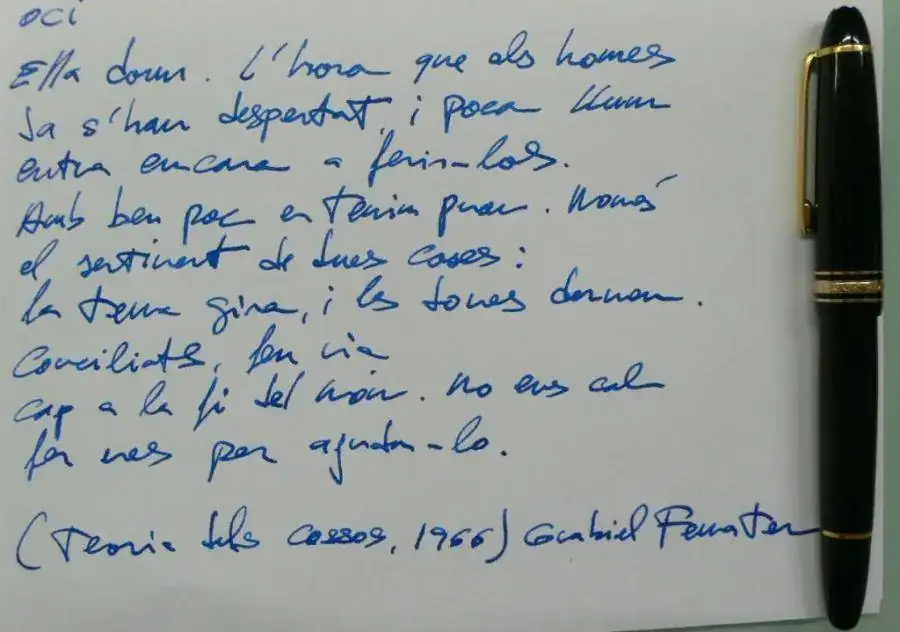 oci
Ella dorm. L'hora que els homes
ja s'han despertat, i poca llum
entra encara a ferir-los.
Amb ben poc en tenim prou. Només
el sentiment de dues coses:
la terra gira, i les dones dormen.
Conciliats, fem via
cap a la fi del món. No ens cal
fer res per ajudar-lo.
(Teoria dels cossos, 1966) Gabriel Ferrater